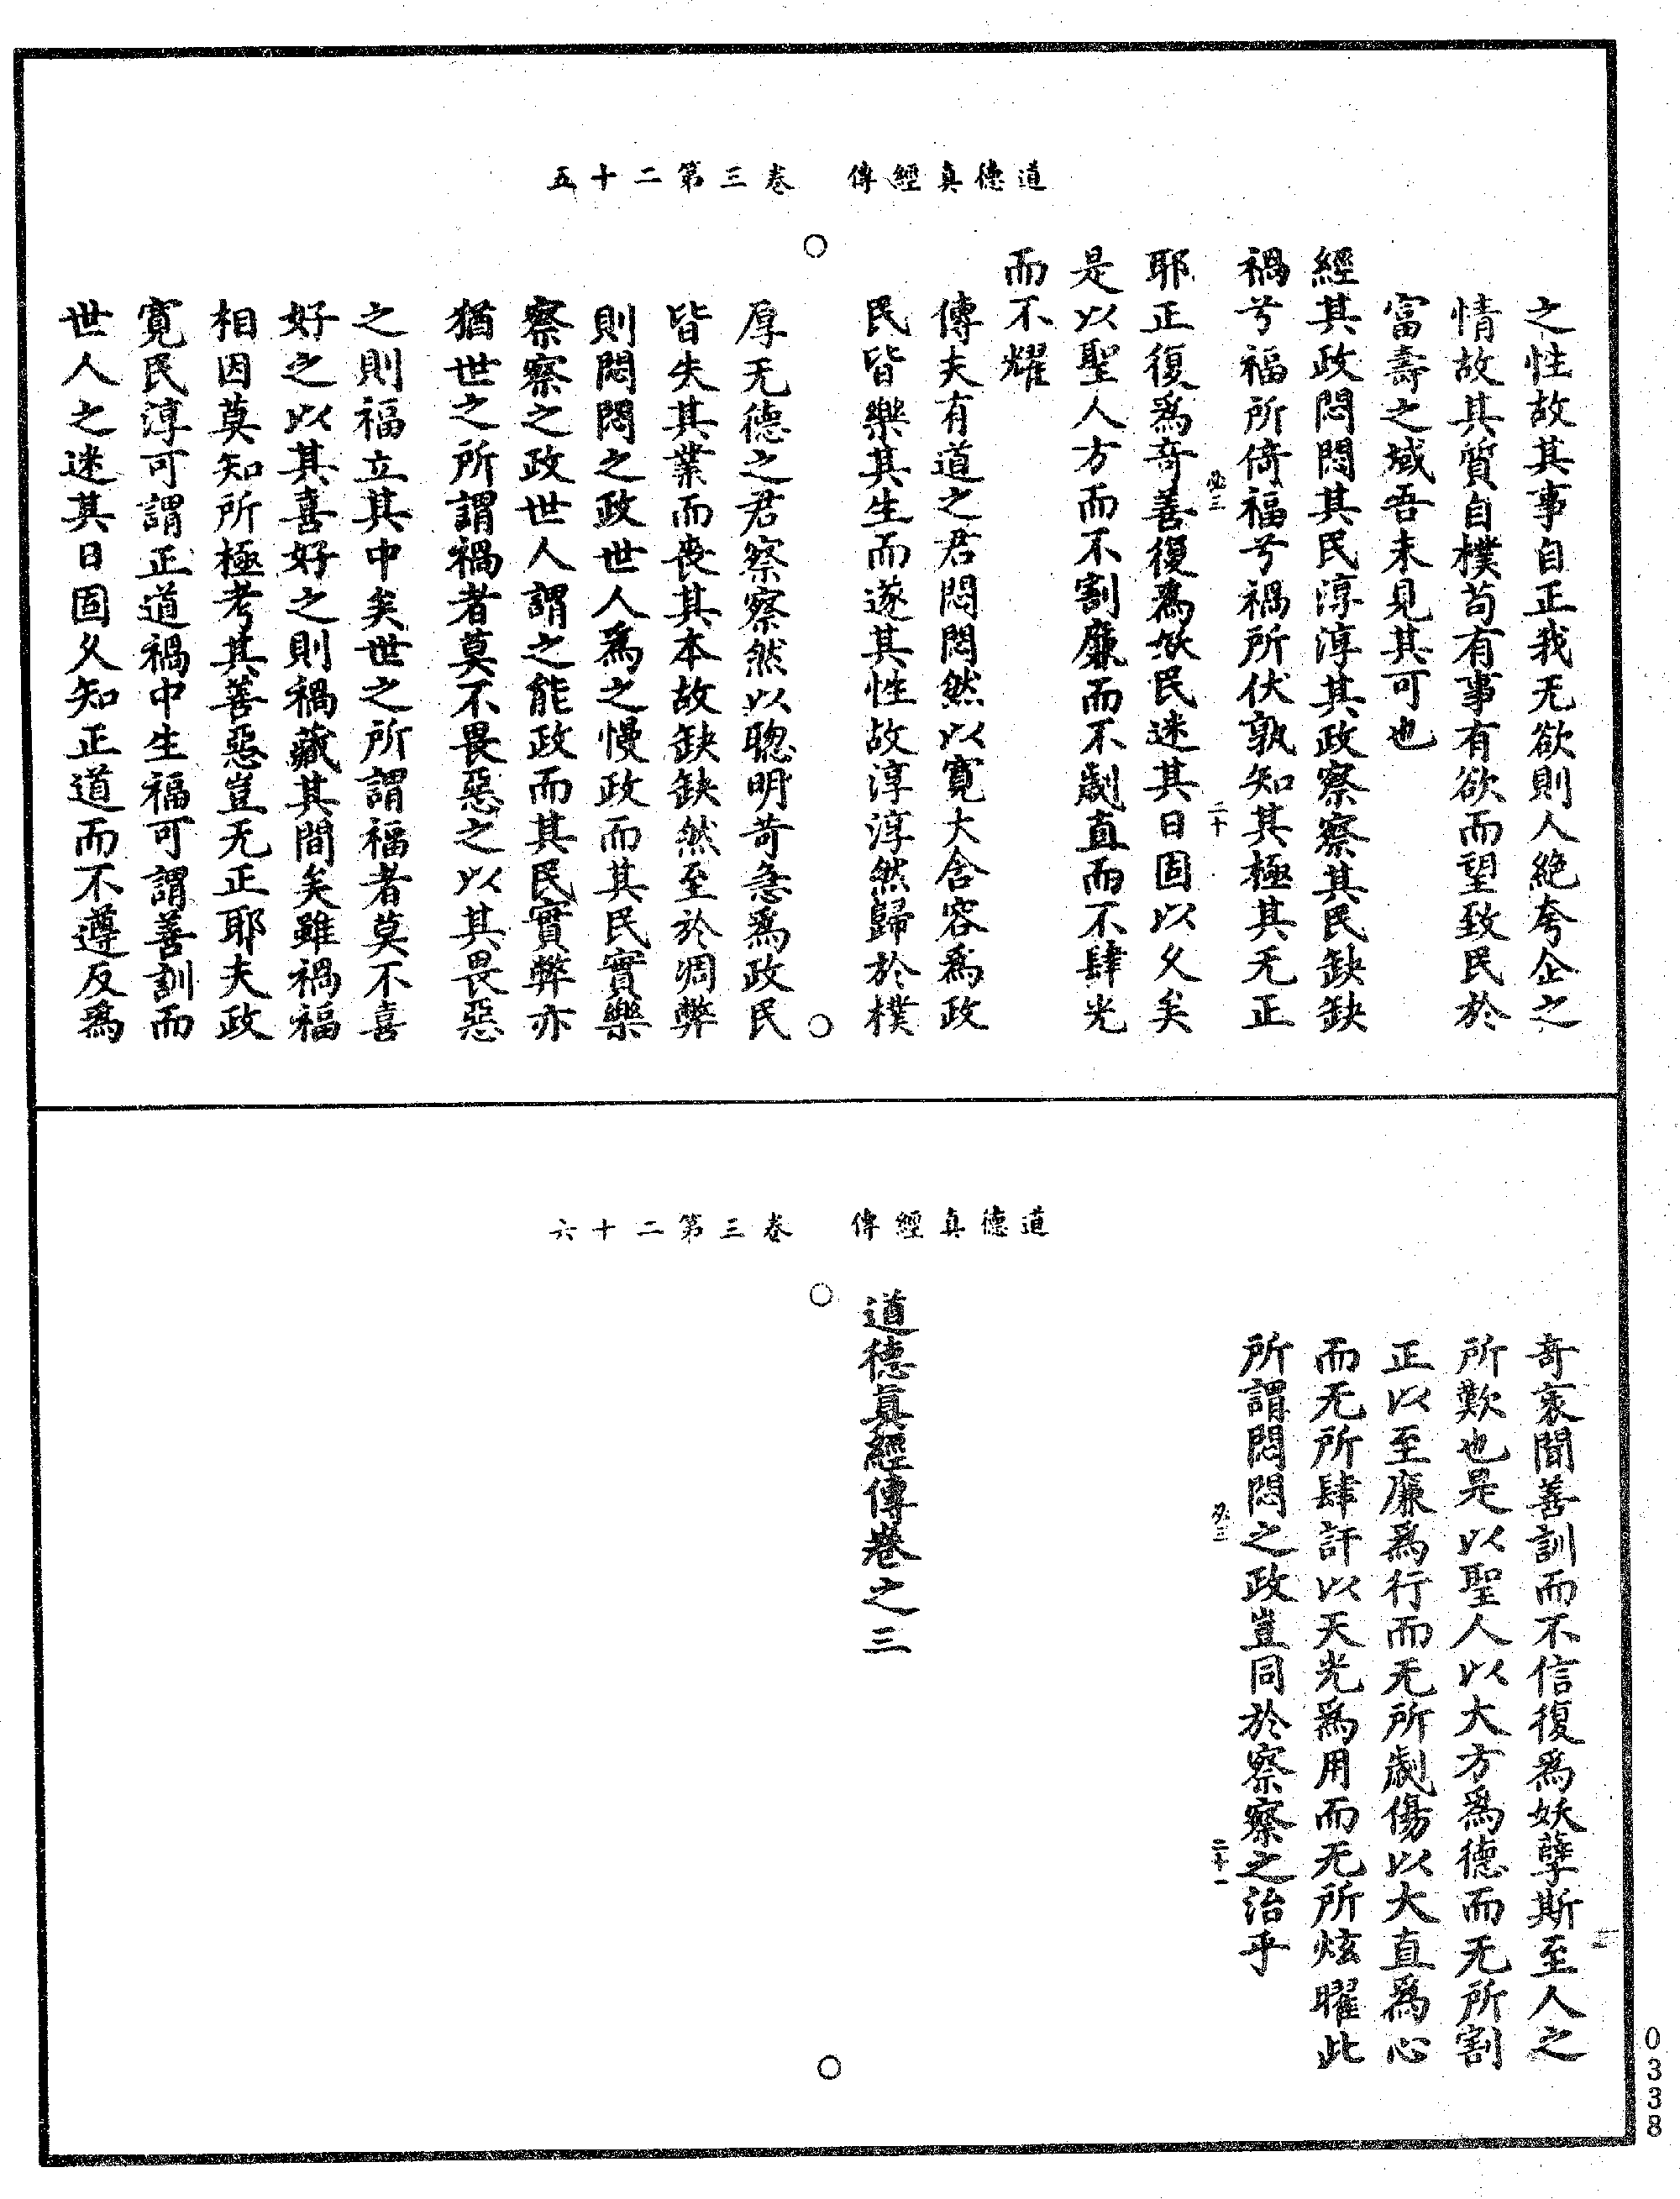 道德真經傳　卷三第二十五
之性故其事自正我无欲則人絶夸企之
情故其質自樸苟有事有欲而望致民於
富壽之域吾未見其可也
經其政悶悶其民淳淳其政察察其民缺缺
禍兮福所倚福兮禍所伏孰知其極其无正
必三
二十
耶正復爲奇善復爲妖民迷其日固以久矣
是以聖人方而不割廉而不劌直而不肆光
而不耀
傳夫有道之君悶悶然以寬大含容爲政
民皆樂其生而遂其性故淳淳然歸於樸
厚无德之君察察然以聰明苛急爲政民
皆失其業而喪其本故缺缺然至於凋弊
則悶悶之政世人爲之慢政而其民實樂
察察之政世人謂之能政而其民實弊亦
猶世之所謂禍者莫不畏惡之以其畏惡
之則福立其中矣世之所謂福者莫不喜
好之以其喜好之則禍藏其間矣雖禍福
相因莫知所極考其善惡豈无正耶夫政
寛民淳可謂正道禍中生福可謂善訓而
世人之迷其日固久知正道而不遵反爲
道德真經傳　卷三第二十六
奇衺聞善訓而不信復爲妖孽斯至人之
所歎也是以聖人以大方爲德而无所割
正以至廉爲行而无所劌傷以大直爲心
而无所肆訐以天光爲用而无所炫曜此
所謂悶悶之政豈同於察察之治乎
必三
二十一
道德眞經傳卷之三
0338